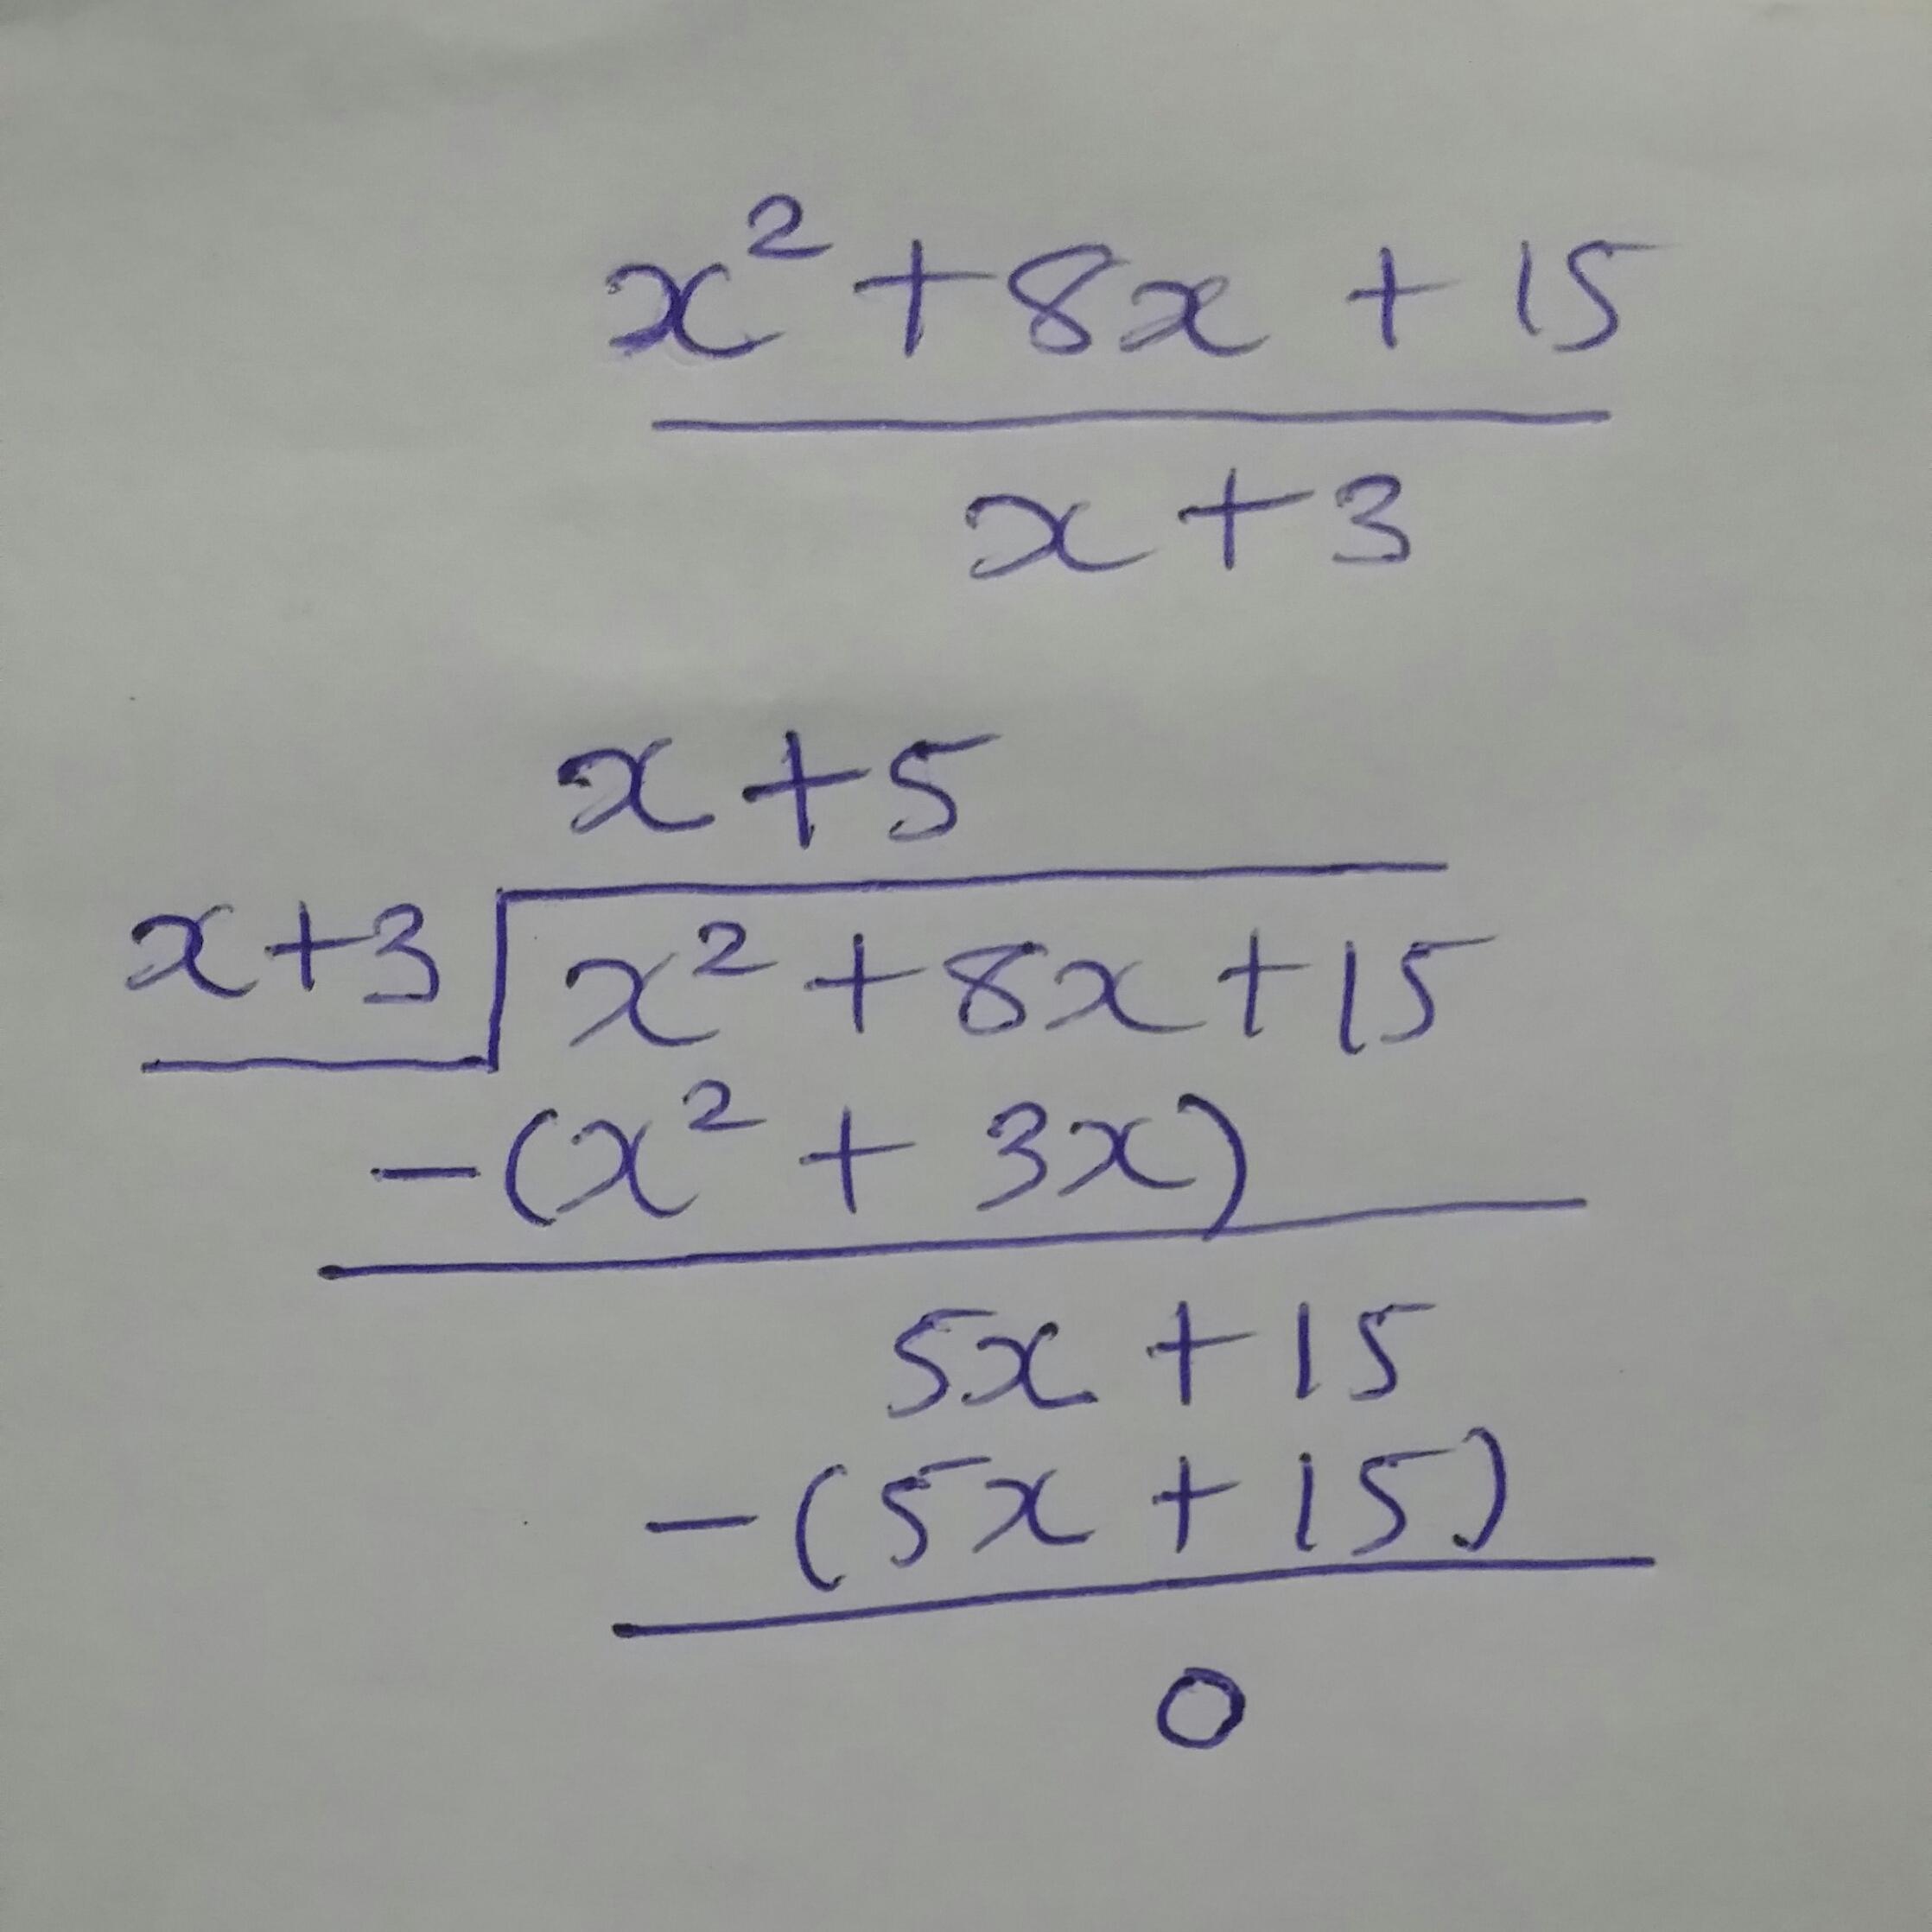 x² + 8x + 15
x + 3
x + 5
x + 3 x² + 8x + 15
- (x² + 3x)
5x + 15
- (5x + 15)
0